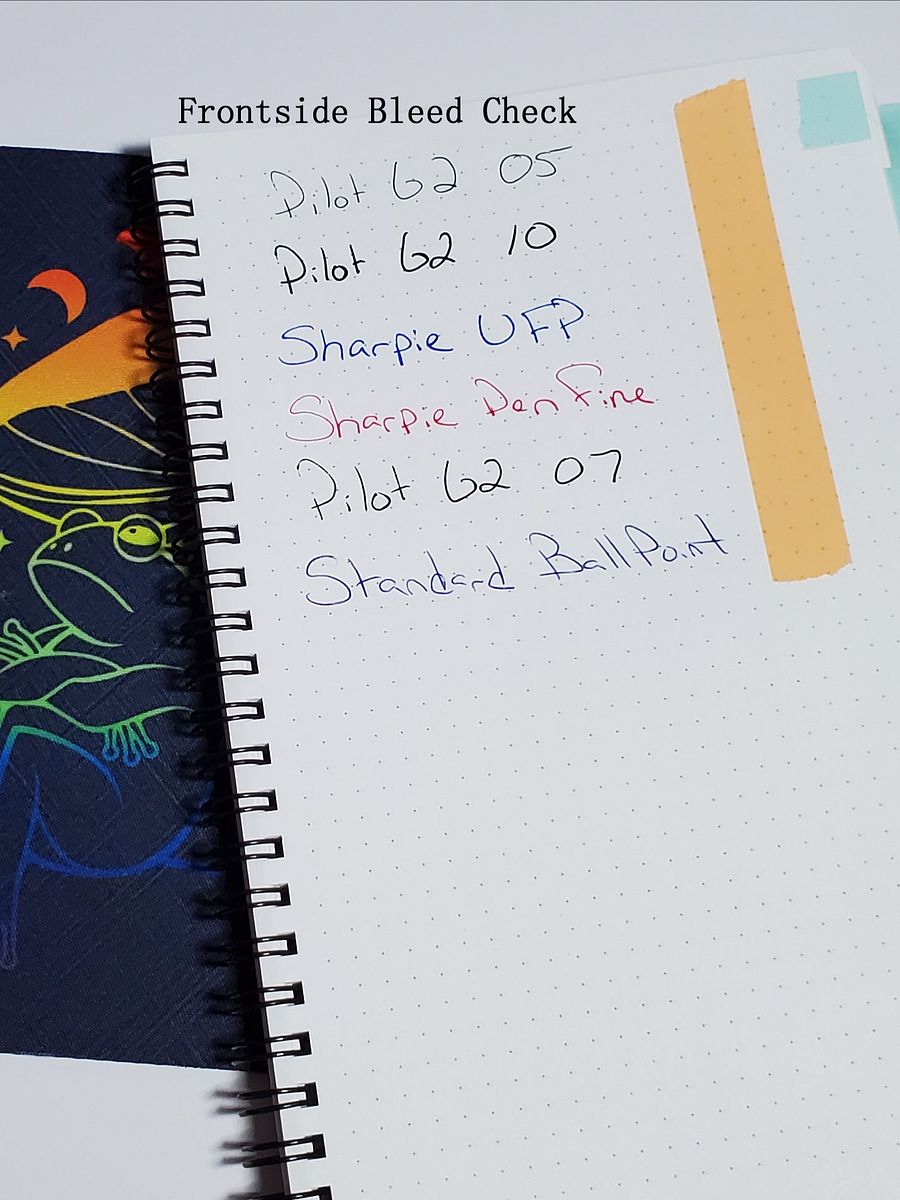 Frontside Bleed Check
Pilot G2 05
Pilot G2 10
Sharpie UFP
Sharpie Pen Fine
Pilot G2 07
Standard BallPoint